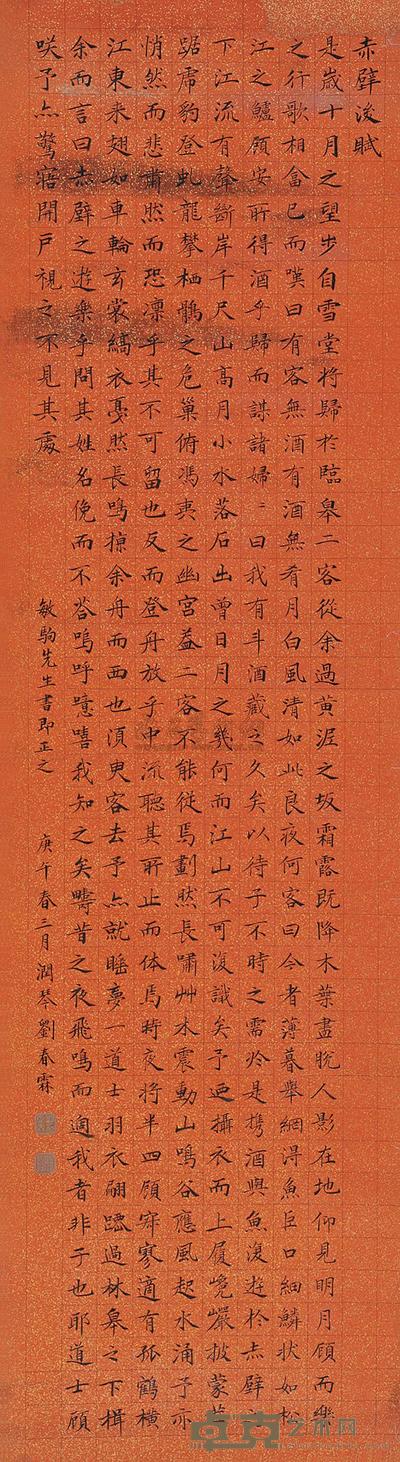 赤壁後賦
是歲十月之望步自雪堂將歸於臨皋二客從余過黃泥之坂霜露既降木葉盡脫人影在地仰見明月顧而樂
之行歌相畣已而嘆曰有客無酒有酒無肴月白風清如此良夜何客曰今者薄暮舉網得魚巨口細鱗狀如松
江之鱸顧安所得酒乎歸而謀諸婦〻曰我有斗酒藏之久矣以待子不時之需於是攜酒與魚復遊於赤壁之
下江流有聲斷岸千尺山高月小水落石出曾日月之幾何而江山不可復識矣予迺攝衣而上履巉巖披蒙茸
踞虎豹登虬龍攀栖鶻之危巢俯馮夷之幽宮益二客不能從焉劃然長嘯艸木震動山鳴谷應風起水涌予亦
悄然而悲肅然而恐凜乎其不可留也反而登舟放乎中流聽其所止而休焉時夜將半四顧寂寥適有孤鶴橫
江東來翅如車輪玄裳縞衣戛然長鳴掠余舟而西也須臾客去予亦就睡夢一道士羽衣翩躚過林皋之下揖
余而言曰赤壁之遊樂乎問其姓名俛而不荅嗚呼噫嘻我知之矣疇昔之夜飛鳴而過我者非子也耶道士顧
咲予亦驚寤開戶視之不見其處
敏駒先生書即正之
庚午春三月潤琴劉春霖
卓克艺术网